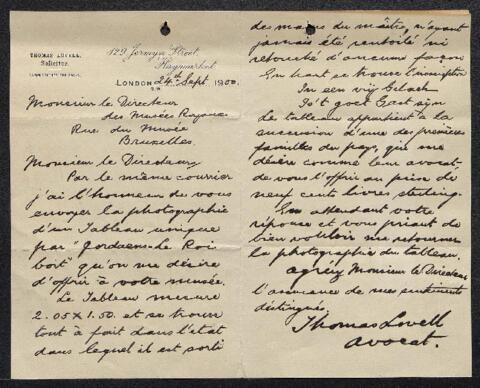 THOMAS LOVELL,
Solicitor.
129 Jermyn Street,
Haymarket
LONDON 24th Sept 1900.
S.W.
Monsieur le Directeur
des Musées Royaux
Rue du Musée
Bruxelles
Monsieur le Directeur
Par le même courrier
j'ai l'honneur de vous
envoyer la photographie
d'un Tableau unique
par "Jordaens-Le Roi
boit" qu'on me désire
d'offrir à votre musée.
Le Tableau mesure
2.05 x 1.50 et se trouve
tout à fait dans l'état
dans lequel il est sorti
des mains du maître, n'ayant
jamais été rentoilé ni
retouché d'aucune façon
En haut se trouve l'inscription
In een vrij Gelach
Is't goet Gast sijn
Le tableau appartient à la
succession d'une des premières
familles du pays, qui me
désire comme leur avocat
de vous l'offrir au prix de
neuf cents livres sterling.
En attendant votre
réponse et vous priant de
bien vouloir me retourner
la photographie du tableau.
agréez Monsieur le Directeur
l'assurance de mes sentiments
distingués
Thomas Lovell
avocat.